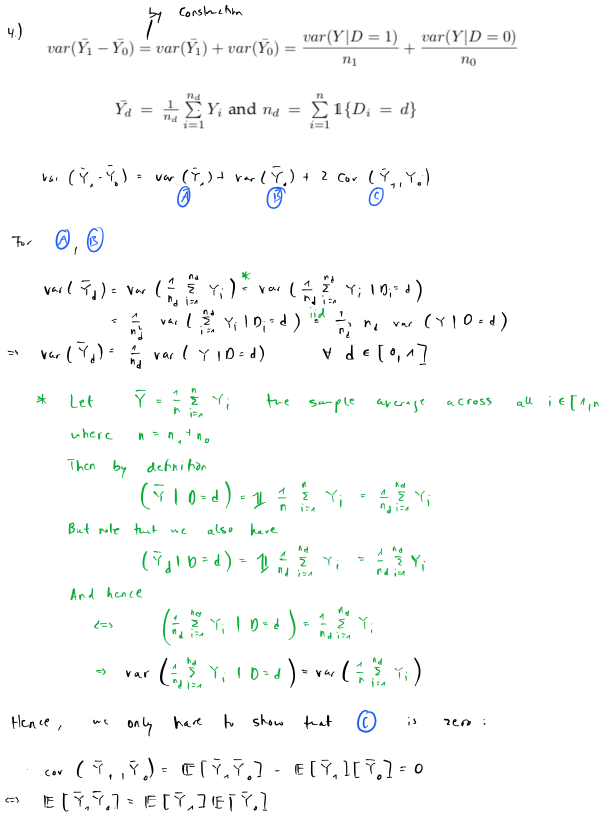 by Construction
4.) var(Ȳ₁ − Ȳ₀) = var(Ȳ₁) + var(Ȳ₀) = var(Y|D = 1)/n₁ + var(Y|D = 0)/n₀
Ȳ_d = 1/n_d ∑_{i=1}^{n_d} Y_i and n_d = ∑_{i=1}^{n} 𝟙{D_i = d}
var (Ȳ₁ - Ȳ₀) = var (Ȳ₁) + var (Ȳ₀) + 2 Cov (Ȳ₁, Y₀)
A B C
For A, B
var (Ȳ_d) = var (1/n_d ∑_{i=1}^{n_d} Y_i) =* var (1/n_d ∑_{i=1}^{n_d} Y_i | D_i = d)
= 1/n_d² var (∑_{i=1}^{n_d} Y_i | D_i = d) =iid 1/n_d² n_d var (Y | D = d)
=> var (Ȳ_d) = 1/n_d var (Y | D = d) ∀ d ∈ [0, 1]
* Let Ȳ = 1/n ∑_{i=1}^{n} Y_i the sample average across all i ∈ [1, n
where n = n₁ + n₀
Then by definition
(Ȳ | D = d) = 𝟙 1/n ∑_{i=1}^{n} Y_i = 1/n_d ∑_{i=1}^{n_d} Y_i
But note that we also have
(Ȳ_d | D = d) = 𝟙 1/n_d ∑_{i=1}^{n_d} Y_i = 1/n_d ∑_{i=1}^{n_d} Y_i
And hence
<=> (1/n_d ∑_{i=1}^{n_d} Y_i | D = d) = 1/n_d ∑_{i=1}^{n_d} Y_i
=> var (1/n_d ∑_{i=1}^{n_d} Y_i | D = d) = var (1/n ∑_{i=1}^{n_d} Y_i)
Hence, we only have to show that C is zero:
cov (Ȳ₁, Ȳ₀) = 𝔼[Ȳ₁Ȳ₀] - 𝔼[Ȳ₁][Ȳ₀] = 0
<=> 𝔼[Ȳ₁Ȳ₀] = 𝔼[Ȳ₁]𝔼[Ȳ₀]